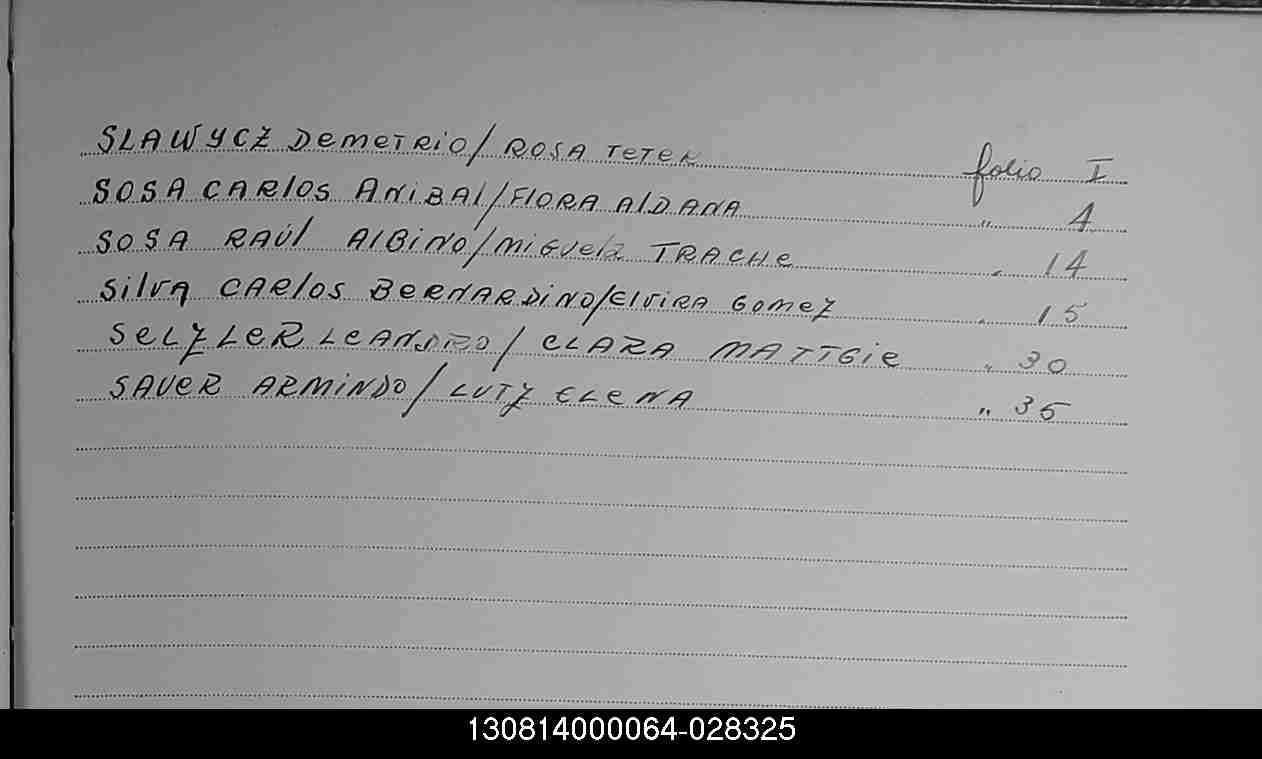 SLAWYCZ DemeTRiO/ ROSA TeTeR folio I
SOSA CARlOS AniBAl/FlORA AlDANA " 4
SOSA RAúl AlBiNO/MiGUelA TRACHe " 14
Silva CARlos BeRNARDiNO/ElviRA Gomez " 15
SeLZLeR LeANDRO/ CLARA MATTGie " 30
SAUeR ARMiNDO/ LUTZ ELeNA " 35
130814000064-028325